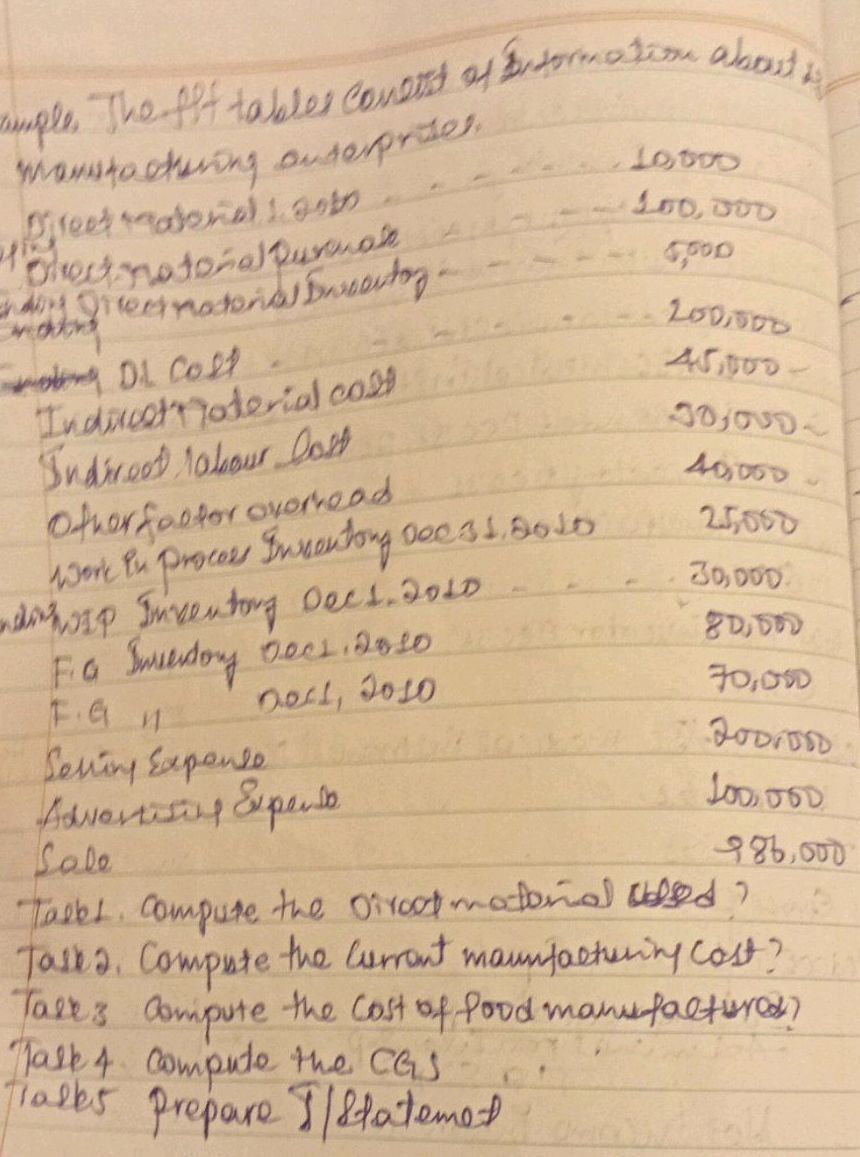 ample. The fft tables Consist of Information about
manufacturing enterprises.
Direct material 1, 2010 - - - - - 10,000
Direct material purchase - - - - 100,000
Ending Direct material Inventory - - - - 5,000
DL Cost - - - - 200,000
Indirect material cost 45,000
Indirect labour Cost 30,000
Other factor overhead 40,000
Work In process Inventory Dec 31, 2010 25,000
WIP Inventory Dec 1. 2010 - - - 30,000
F.G Inventory Dec 1, 2010 80,000
F.G " Dec 1, 2010 70,000
Selling Expense 200,000
Advertising Expense 100,000
Sale 986,000
Task1. Compute the Direct material used?
Task2. Compute the Current manufacturing Cost?
Task3 Compute the Cost of Good manufactured?
Task4 Compute the CGS
Task5 Prepare I/Statement